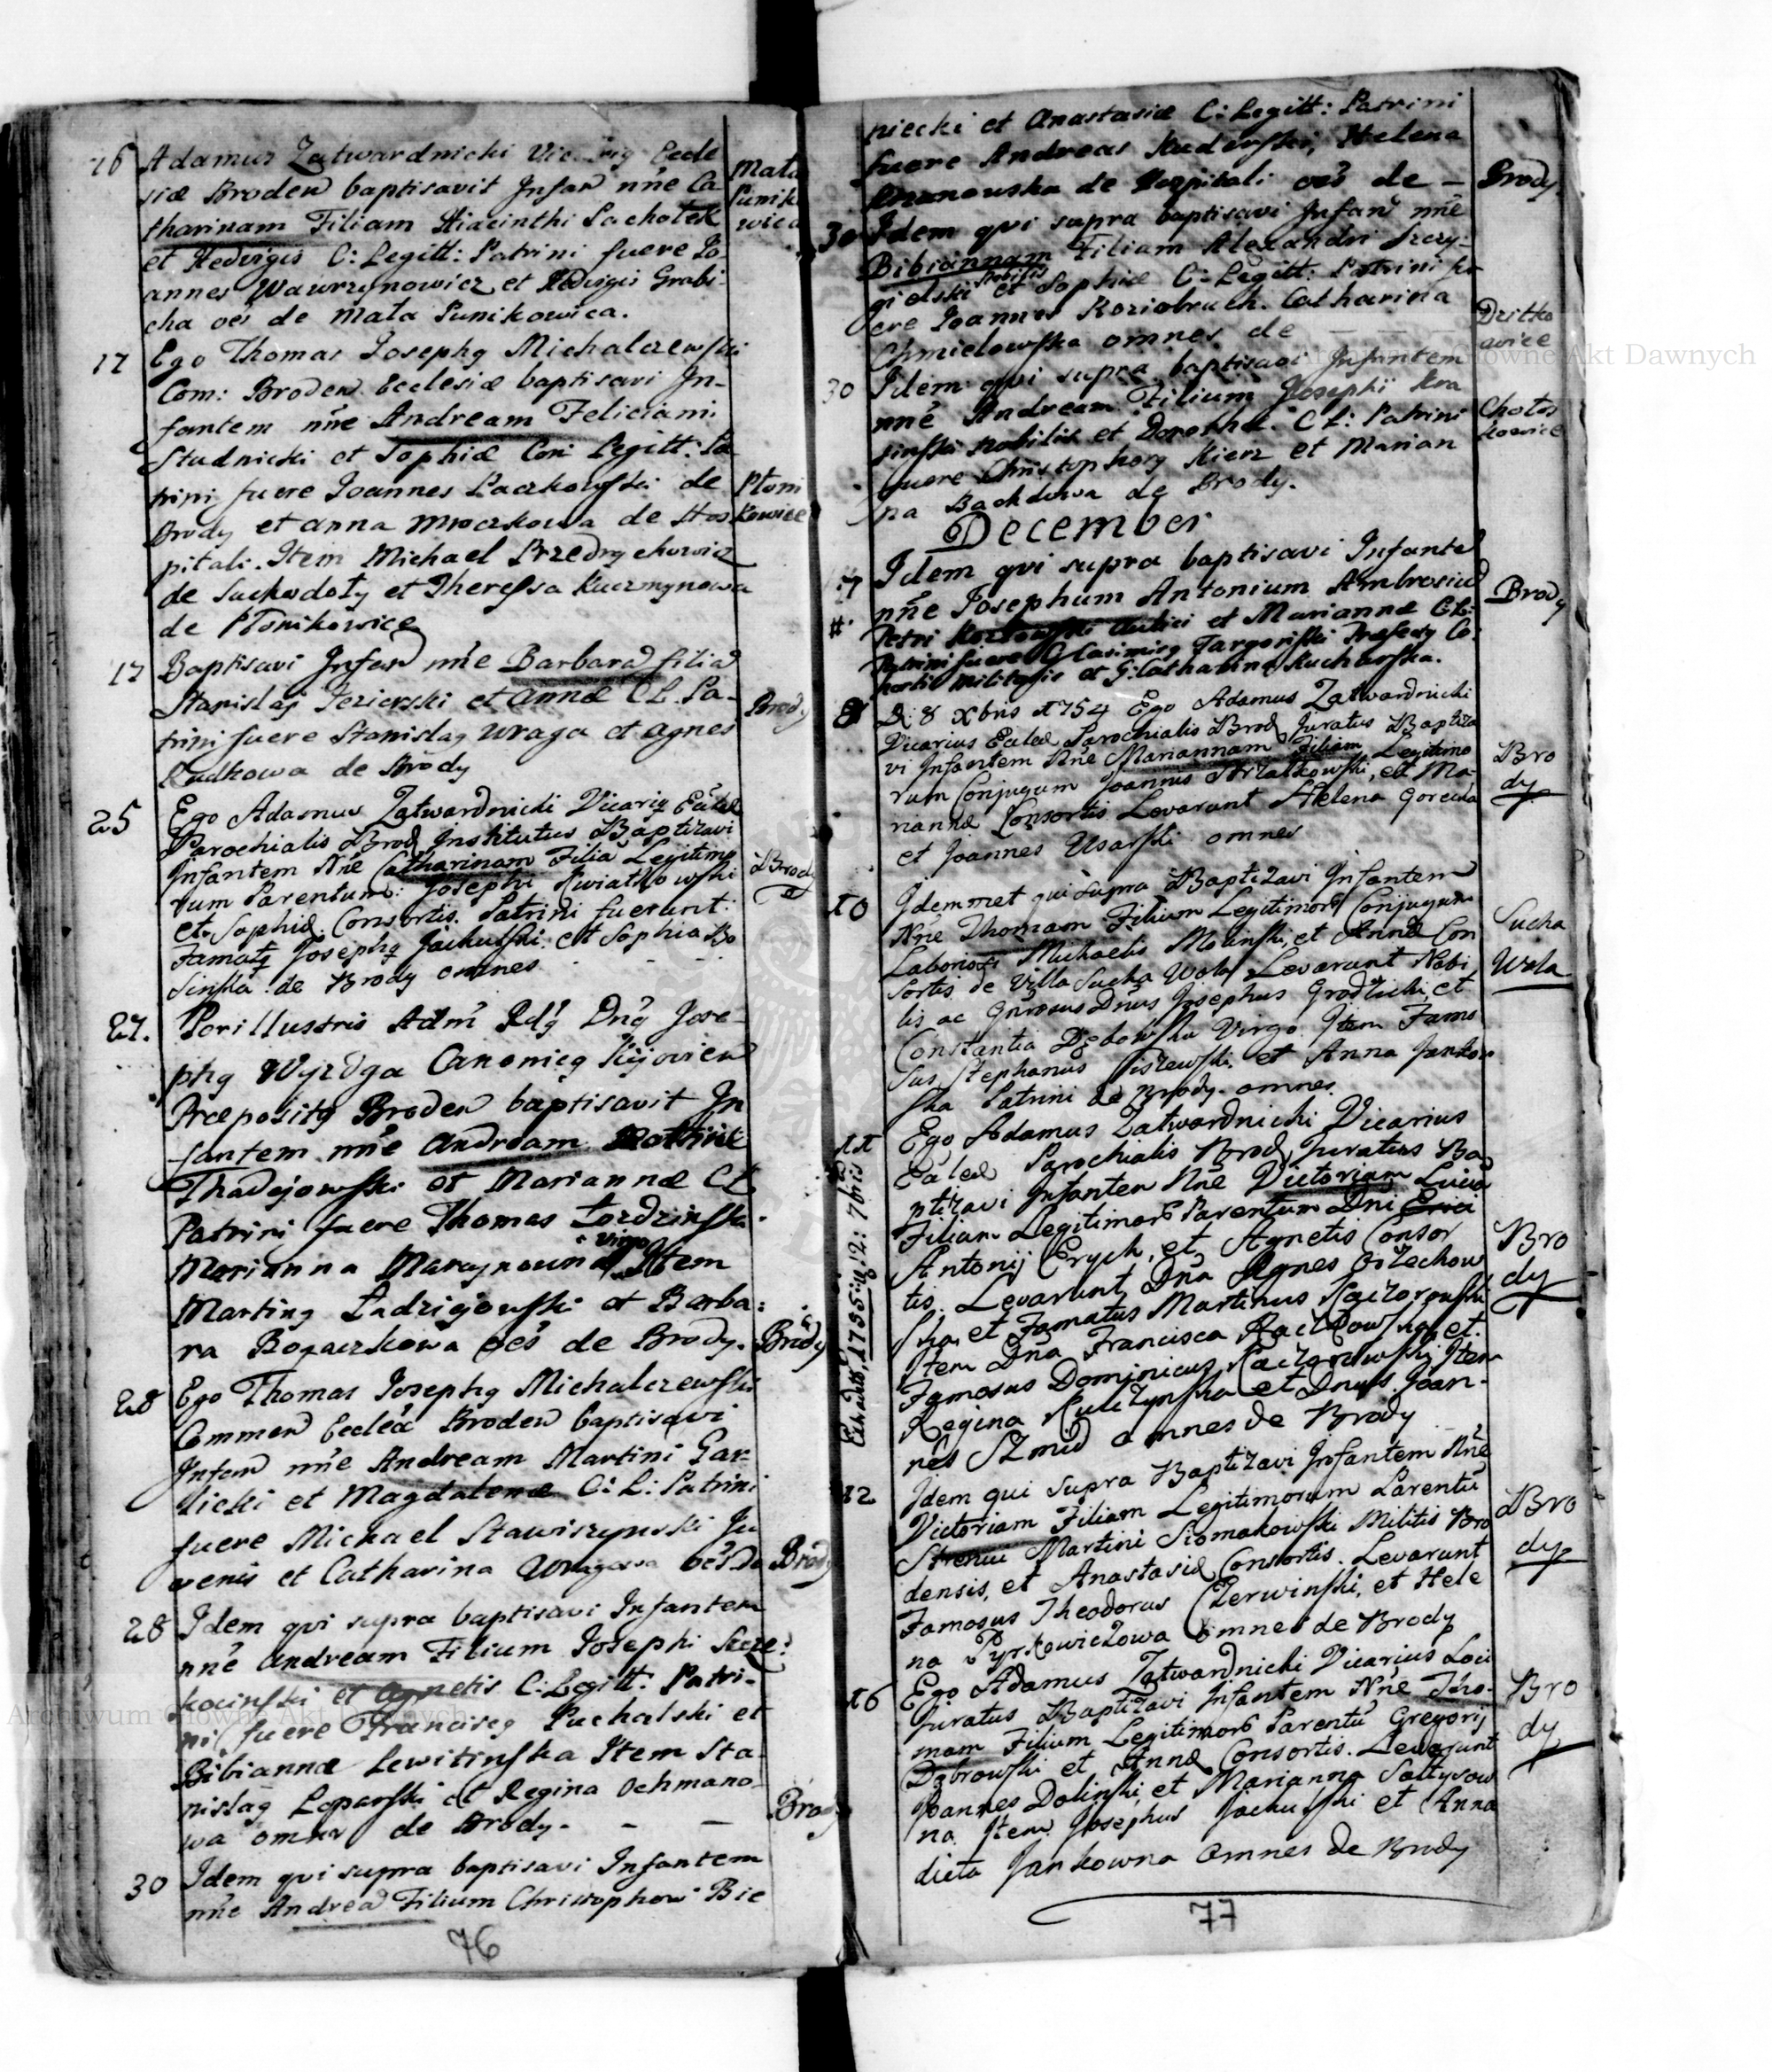 16 Adamus Zatwardnicki Eccle
siæ Broden baptisavit Infan nñe Ca
tharinam Filiam Hiacinthi Pacholek
et Hedvigis C: Legitt: Patrini fuere Jo
annes Wawrzynowicz et Hedvigis Grabi-
cha oẽs de Mała Punikowica.
Mała
Punik
wica
17 Ego Thomas Josephg Michalczewski
Com: Broden Ecclesiæ baptisavi In-
fantem nñe Andream Feliciani
Studnicki et Sophiæ Con: Legitt: Pa
trini fuere Joannes Paczkowski de
Brody et Anna Mroczkowa de Hos
pitali. Item Michael Przedrzychowicz
de Suchodoły et Theressa Kuczmynowa
de Płonikowice
Płoni
kowice
17 Baptisavi Infan nñe Barbara filia
Stanislai Jezierski et Annæ C L. Pa-
trini fuere Stanislag Wraga et Agnes
Rudkowa de Brody
Brody
25 Ego Adamus Zatwardnicki Vicarig Eccleæ
Parochialis Brod Institutus Baptizavi
Infantem Nñe Catharinam Filiã Legitimo
rum Parentum: Josephi Kwiatkowski
et Sophiæ Consortis. Patrini fuerunt:
Famatg Josephg Jachulski et Sophia Bo
sinska de Brody omnes
Brody
27. Perillustris Adm̃ Rdg Dng Jose-
phg Wyzdga Canonicg Kijovien
Præpositg Broden baptisavit In
fantem nñe Andream
Thadejowski et Mariannæ C L
Patrini fuere Thomas Łozdzinski.
Marianna Marcynowna Virgo Item
Marting Ładziejowski et Barba:
ra Rogaczkowa oẽs de Brody.
Brody
28 Ego Thomas Josephg Michalczewski
Commen Eccleæ Broden baptisavi
Infan nñe Andream Martini Gar-
licki et Magdalenæ C: L: Patrini
fuere Michael Stawiszynski Ju
venis et Catharina Wragowa oẽs de
Brody
28 Idem qvi supra baptisavi Infantem
nñe Andream Filium Josephi Szcze:
kocinski et Agnetis C: Legitt: Patri-
ni fuere Franciscg Puchalski et
Bibiannæ Lewitinska Item Sta-
nislag Łoparski et Regina Ochmano-
wa omnes de Brody. - -
Brody
30 Idem qvi supra baptisavi Infantem
nñe Andrea Filium Christophori Bie
76
piecki et Anastasiæ C: Legitt: Patrini
fuere Andreas Helena
de Hospitali oẽs de -
Brody
30 Idem qvi supra baptisavi Infan nñe
Bibiannam Filiam Alexandri Szczy-
gielski nobilis et Sophiæ C: Legitt: Patrini fu-
ere Joannes Koziobruch. Catharina
Chmielowska omnes de - - -
30 Idem qvi supra baptisavi Infantem
nñe Andream Filium Josephi Kra
sinski nobilis et Dorotheæ C L: Patrini
fuere Christophorg Kierz et Marian
na Bachdowa de Brody.
December
7 Idem qvi supra baptisavi Infante
nñe Josephum Antonium Ambrosiu
Petri Kozłowski Aulici et Mariannæ C L:
Patrini fuere G Casimirg Targoriski Præfectg Co:
hortis Militaris et G: Catharina Kucharska.
Brody
8 D: 8 Xbris 1754 Ego Adamus Zatwardnicki
Vicarius Ecleæ Parochialis Brod Juratus Baptiza
vi Infantem Nñe Mariannam Filiam Legitimo
rum Conjugum Joannis Strzałkowski, et Ma-
riannæ Consortis Levarunt Helena Gorecka
et Joannes Usarski omnes
Bro
dy
10 Idemmet qui supra Baptizavi Infantem
Nñe Thomam Filium Legitimorũ Conjugum
Laboriosi Michaelis Molinski, et Annæ Con
sortis de Villa Sucha Wola Levarunt Nobi
lis ac Gnrosus Dnus Josephus Grodzicki, et
Constantia Dębowska Virgo Item Famo
sus Stephanus Piszewski, et Anna Jankow
ska Patrini de Brody. omnes.
Sucha
Wola
11 Ego Adamus Zatwardnicki Vicarius
Ecleæ Parochialis Brod Juratus Ba
ptizavi Infantem Nñe Victoriam Lucia
Filiam Legitimorũ Parentum Dni Erici
Antonij Erych, et Agnetis Consor
tis. Levarunt Dña Agnes Orzechow
ska et Famatus Martinus Kaczorowski
Item Dña Francisca Raczkowska, et
Famosus Dominicus Kaczorowski, Item
Regina Kulczynska et Dnus Joan-
nes Szmid omnes de Brody
Bro
dy
12 Idem qui supra Baptizavi Infantem Nñe
Victoriam Filiam Legitimorum Parentũ
Strenui Martini Siomakowski Militis Bro
densis, et Anastasiæ Consortis. Levarunt
Famosus Theodorus Czerwinski, et Hele
na Pyrkowiczowa omnes de Brody
Bro
dy
16 Ego Adamus Zatwardnicki Vicarius Loci
Juratus Baptizavi Infantem Nñe Tho-
mam Filium Legitimorũ Parentũ Gregorij
Dąbrowski et Annæ Consortis. Levarunt
Joannes Dolinski, et Marianna Sołtysow
na. Item Josephus Jachulski et Anna
dicta Jankowna omnes de Brody
Bro
dy
77